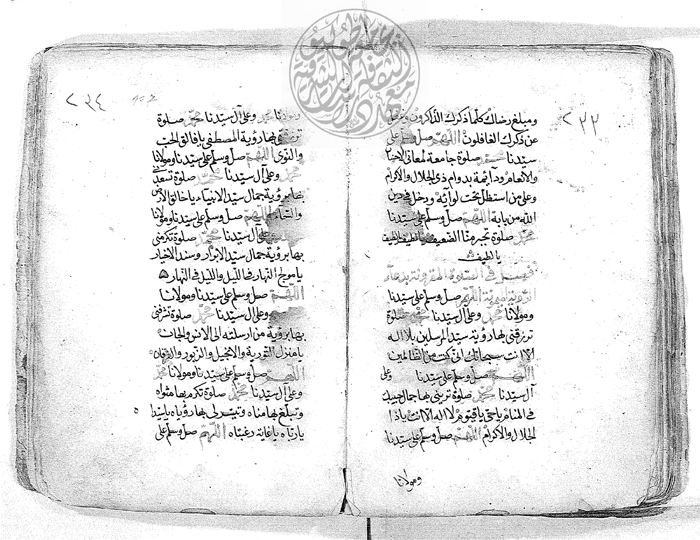 ٢٣٣
ومبلغ رضاك كلما ذكرك الذاكرون وغفل
عن ذكرك الغافلون اللهم صل وسلم على
سيدنا محمد صلوة جامعة لمعاني الاحسان
والانعام ودائمة بدوام ذي الجلال والاكرام
وعلى من استظل تحت لوائه ودخل في حزب
الله من بابه اللهم صل وسلم على سيدنا
محمد صلوة تجبر منا الضعيف يا لطيف اللطيف
يا لطيف
فصل في الصلوة المقرونة بدعاء
الرؤية النبوية اللهم صل وسلم على سيدنا
ومولانا محمد وعلى آل سيدنا محمد صلوة
ترزقني بها رؤية سيد المرسلين بلا اله
الا انت سبحانك اني كنت من الظالمين
اللهم صل وسلم على سيدنا وعلى
آل سيدنا محمد صلوة تريني بها جمال حبيبك
في المنام يا حي يا قيوم لا اله الا انت يا ذا
الجلال والاكرام اللهم صل وسلم على سيدنا
ومولانا
٢٣٤
ومولانا محمد وعلى آل سيدنا محمد صلوة
ترزقني بها رؤية المصطفى يا فالق الحب
والنوى اللهم صل وسلم على سيدنا ومولانا
محمد وعلى آل سيدنا محمد صلوة تسعدني
بها برؤية جمال سيد الانبياء يا خالق الارض
والسماء اللهم صل وسلم على سيدنا ومولانا
محمد وعلى آل سيدنا محمد صلوة تكرمني
بها برؤية جمال سيد الابرار وسند الاخيار
يا مولج النهار في الليل والليل في النهار
اللهم صل وسلم على سيدنا ومولانا
محمد وعلى آل سيدنا محمد صلوة تشرفني
بها برؤية من ارسلته الى الانس والجان
يا منزل التورية والانجيل والزبور والفرقان
اللهم صل وسلم على سيدنا ومولانا محمد
وعلى آل سيدنا محمد صلوة تكرم بها مثواه
وتبلغ بها مناه وتيسر لي بها رؤياه يا سيدا
يا رباه يا غاية رغبتاه اللهم صل وسلم على